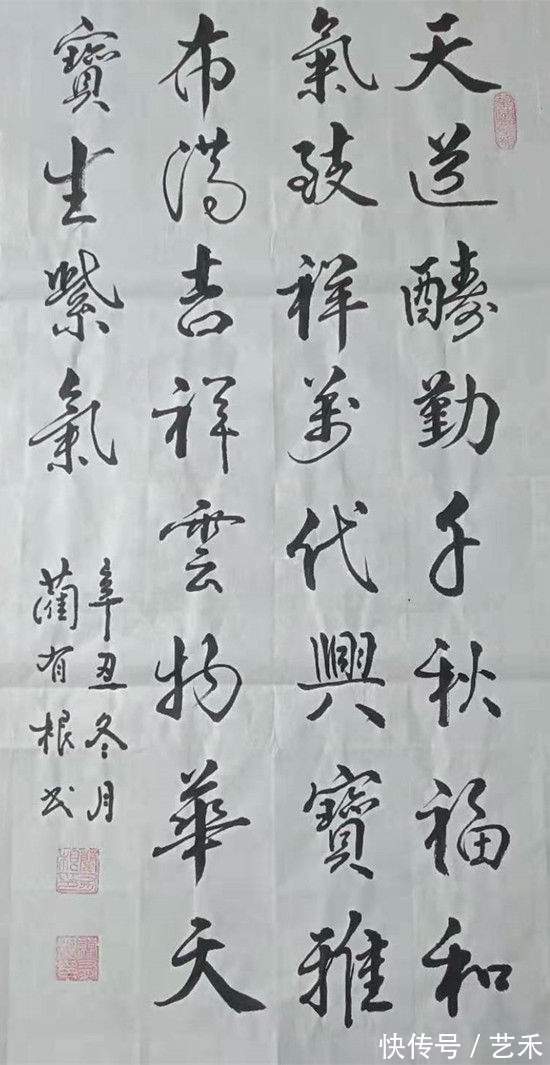 天道酬勤千秋福和
氣致祥萬代興寶雅
布满吉祥雲物華天
寶生紫氣
辛丑冬月
蔺有根书
快传号 / 艺禾